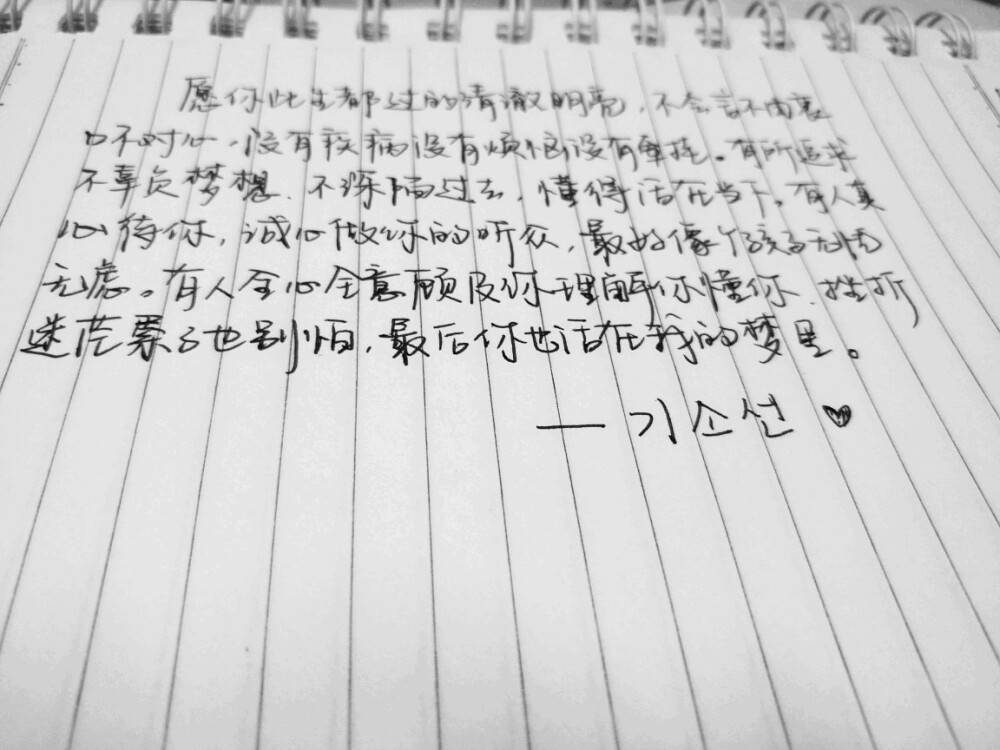 愿你此生都过的清澈明亮，不会言不由衷
口不对心，没有疾病没有烦恼没有牵挂。有所追求
不辜负梦想，不深陷过去，懂得活在当下。有人真
心待你，诚心做你的听众，最好像个孩子无忧
无虑。有人全心全意顾及你理解你懂你，挫折
迷茫累了也别怕，最后你也活在我的梦里。
—— 기소선 ♥